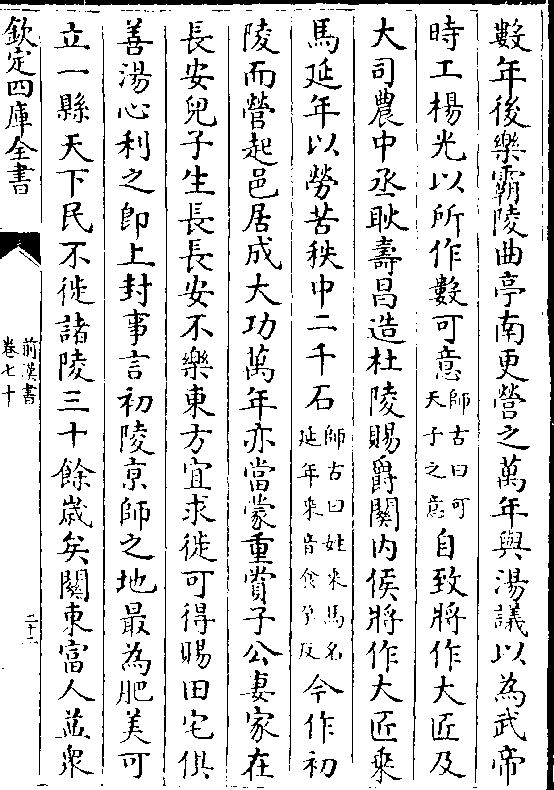 數年後樂霸陵曲亭南更營之萬年與湯議以為武帝
時工楊光以所作數可意師古曰可天子之意自致將作大匠及
大司農中丞耿壽昌造杜陵賜爵關内侯將作大匠乗
馬延年以勞苦秩中二千石師古曰姓乗馬名延年乗音食孕反今作初
陵而營起邑居成大功萬年亦當蒙重賞子公妻家在
長安兒子生長長安不樂東方宜求徙可得賜田宅俱
善湯心利之即上封事言初陵京師之地最為肥美可
立一縣天下民不徙諸陵三十餘嵗矣關東富人益衆
欽定四庫全書
前漢書
卷七十
二十二